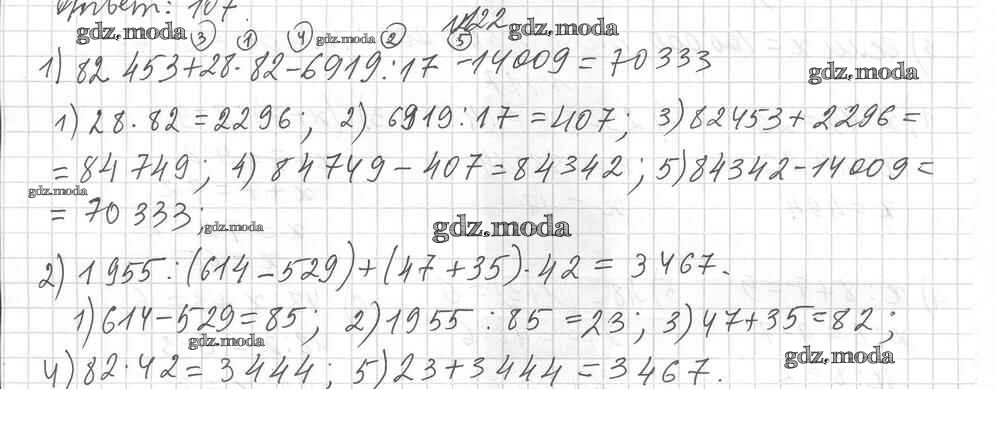 Ответ: 107.
№122
gdz.moda gdz.moda
③ ① ④ gdz.moda ② ⑤
1) 82 453+28·82-6919:17-14009=70333
gdz.moda
1) 28·82=2296; 2) 6919:17=407; 3) 82453+2296=
=84749; 4) 84749-407=84342; 5) 84342-14009=
gdz.moda
=70333;
gdz.moda gdz.moda
2) 1955:(614-529)+(47+35)·42=3467.
1) 614-529=85; 2) 1955:85=23; 3) 47+35=82;
gdz.moda gdz.moda
4) 82·42=3444; 5) 23+3444=3467.